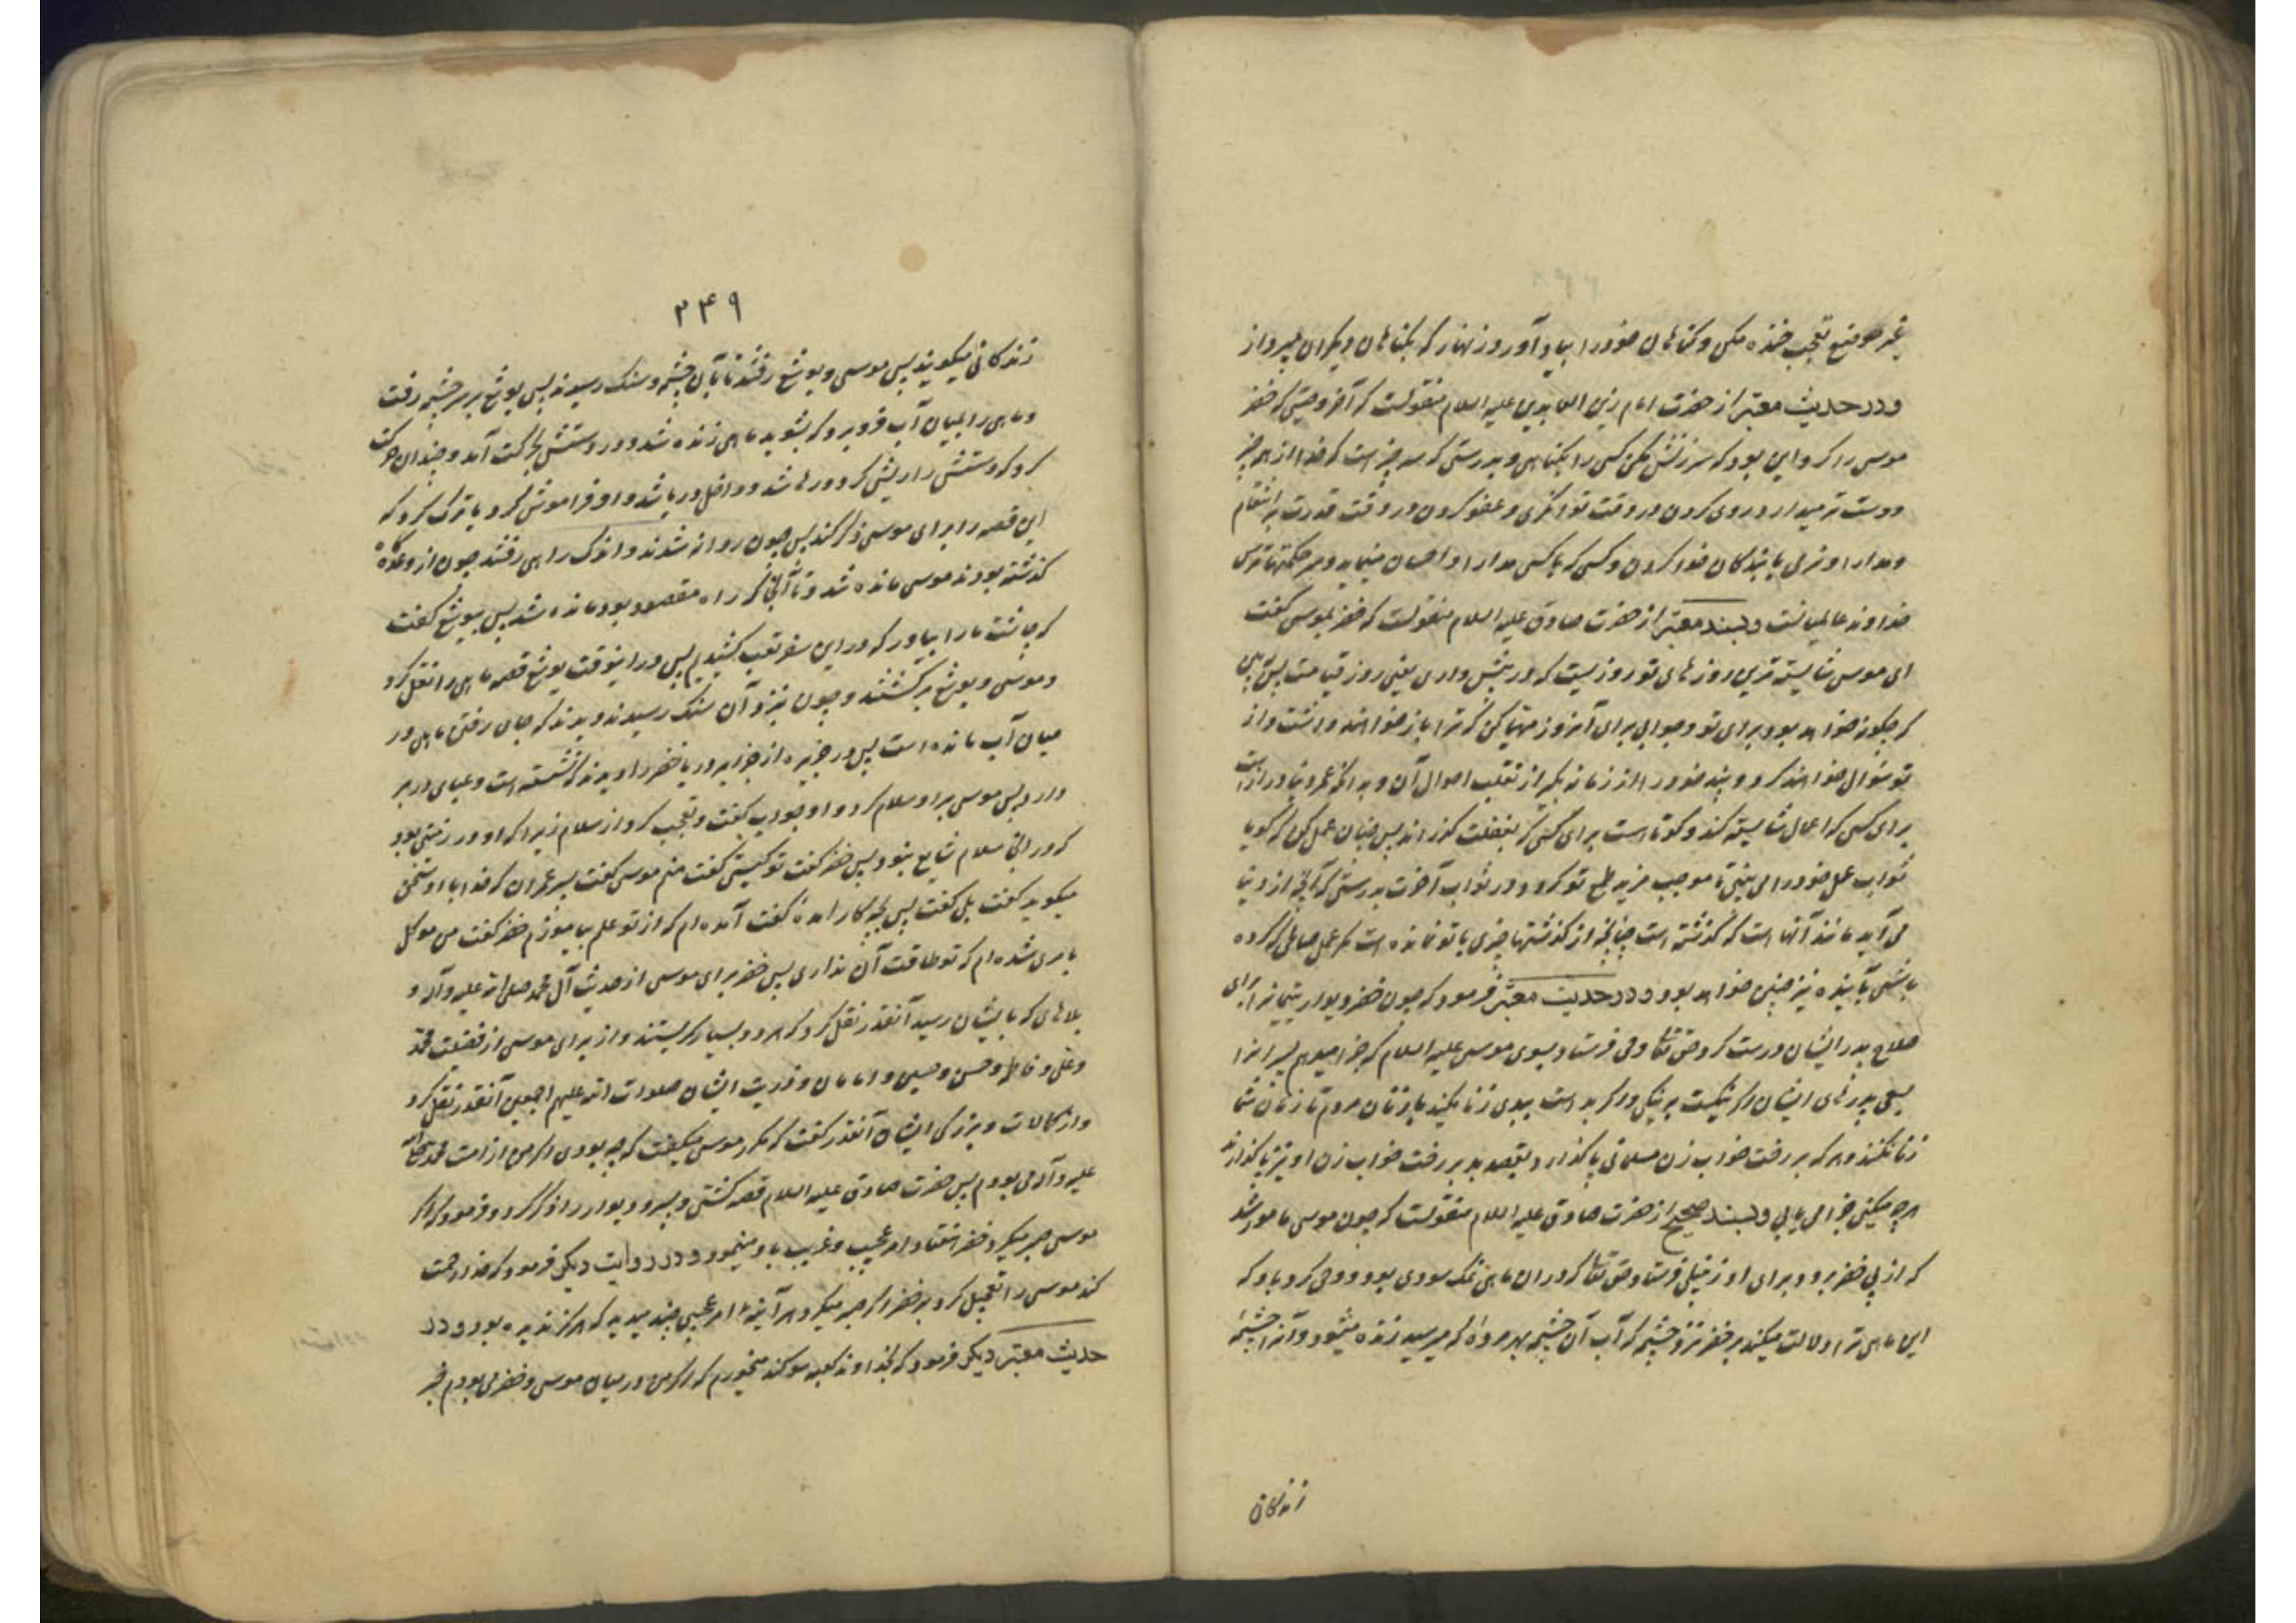 غیر موضع تعجب خنده مکن و گناهان خود را بیاد آور و زنهار که بگناهان دیگران مپرداز
و در حدیث معتبر از حضرت امام زین العابدین علیه السلام منقولست که آخر وصیتی که خضر
موسی را کرد این بود که سرزنش مکن کسی را بگناهی و بدرستی که سه چیز است که خدا از همه چیز
دوست تر میدارد میانه روی کردن در وقت توانگری و عفو کردن در وقت قدرت بر انتقام
و مدارا و نرمی با بندگان خدا کردن و کسی که با کسی مدارا و احسان مینماید و سر حکمتها ترس
خداوند عالمیانست و بسند معتبر از حضرت صادق علیه السلام منقولست که خضر بموسی گفت
ای موسی شایسته ترین روزهای تو روزیست که در پیش داری یعنی روز قیامت پس ببین
که چگونه خواهد بود برای تو و جوابی برای آنروز مهیا کن که ترا باز خواهند داشت و از
تو سؤال خواهند کرد و پند خود را از زمانه بگیر از تقلب احوال آن و بدانکه عمر دنیا دراز است
برای کسی که اعمال شایسته کند و کوتاه است برای کسی که بغفلت گذراند پس چنان عمل کن که گویا
ثواب عمل خود را می بینی تا موجب مزید طمع تو گردد در ثواب آخرت بدرستی که آنچه از دنیا
می آید مانند آنها است که گذشته است چنانچه از گذشتها چیزی با تو نمانده است مگر عمل صالحی که کرده
باشی آینده نیز چنین خواهد بود و در حدیث معتبر فرمود که چون خضر دیوار یتیمانرا برای
صلاح پدر ایشان درست کرد حق تعالی وحی فرستاد بسوی موسی علیه السلام که جزا میدهم پسرانرا
بسعی پدرهای ایشان اگر نیکست به نیکی و اگر بد است ببدی زنا مکنید با زنان مردم تا زنان شما
زنا نکنند و هر که بر رخت خواب زن مسلمانی پا گذارد بقصد بد بر رخت خواب زن او نیز پا گذارند
هر چه میکنی جزا می یابی و بسند صحیح از حضرت صادق علیه السلام منقولست که چون موسی مامور شد
که از پی خضر برود برای او زنبیلی فرستاد حق تعالی که در ان ماهی نمک سودی بود و وحی کرد باو که
این ماهی ترا دلالت میکند بر خضر نزد چشمه که آب آن چشمه بهر مرده که میرسد زنده میشود و آنرا چشمه
زندگانی
۲۴۹
زندگانی میگویند پس موسی و یوشع رفتند تا بآن چشمه و سنک رسیدند پس یوشع بر سر چشمه رفت
و ماهی را بمیان آب فرو برد که بشوید ماهی زنده شد و در دستش بحرکت آمد و چندان حرکت
کرد که دستش را ریش کرد و رها شد و داخل دریا شد و او فراموش کرد یا ترک کرد که
این قصه را برای موسی ذکر کند پس چون روانه شدند و اندک راهی رفتند چون از وعده گاه
گذشته بودند موسی مانده شد و تا آنجا که راه مقصود بود مانده نشد پس بیوشع گفت
که چاشت ما را بیاور که در این سفر تعب کشیدیم پس در اینوقت یوشع قصه ماهی را نقل کرد
و موسی و یوشع برگشتند و چون نزد آن سنک رسیدند دیدند که جای رفتن ماهی در
میان آب مانده است پس در جزیره از جزایر دریا خضر را دیدند که نشسته است و عبای در بر
دارد پس موسی بر او سلام کرد و او جواب گفت و تعجب کرد از سلام زیرا که او در زمینی بود
که در انجا سلام شایع نبود پس خضر گفت تو کیستی گفت منم موسی گفت پسر عمران که خدا با او سخن
میگوید گفت بلی گفت پس بچه کار آمدۀ گفت آمده ام که از تو علم بیاموزم خضر گفت من موکل
بامری شده ام که تو طاقت آن نداری پس خضر برای موسی از حدیث آل محمد صلی الله علیه و آله و
بلاهای که بایشان رسید آنقدر نقل کرد که هر دو بسیار گریستند و از برای موسی از فضیلت محمد
و علی و فاطمه و حسن و حسین و امامان و ذریت ایشان صلوات الله علیهم اجمعین آنقدر نقل کرد
و از کمالات و بزرگی ایشان آنقدر گفت که مکرر موسی میگفت که چه بودی اگر من از امت محمد صلی الله
علیه و آله می بودم پس حضرت صادق علیه السلام قصه کشتی و پسر و دیوار را ذکر کرد و فرمود که اگر
موسی صبر میکرد خضر هفتاد امر عجیب و غریب باو مینمود و در روایت دیگر فرمود که خدا رحمت
کند موسی را تعجیل کرد بر خضر اگر صبر میکرد هر آینه امر عجیبی چند میدید که هرگز ندیده بود و در
حدیث معتبر دیگر فرمود که بخداوند کعبه سوگند میخورم که اگر من در میان موسی و خضر می بودم خبر